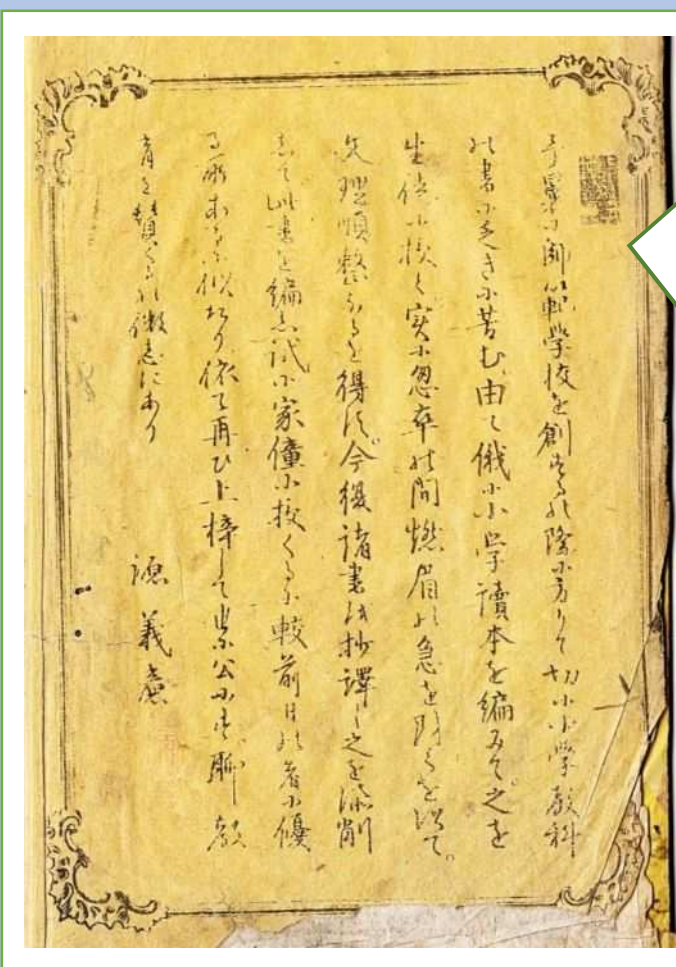 予曩に師範學校を創むるの際に方りて切に小學教科
の書に乏きに苦む、由て俄に小學讀本を編みて、之を
生徒に授く実に怱卒の間燃眉の急を防くを以て。
文理順整なるを得す、今復諸書を抄譯し之を添削
して此書を編し試に家僮に授くるに較前日の者に優
る所あるに似たり依て再ひ上梓して公にす聊教
育を賛くるの微志にあり
源義